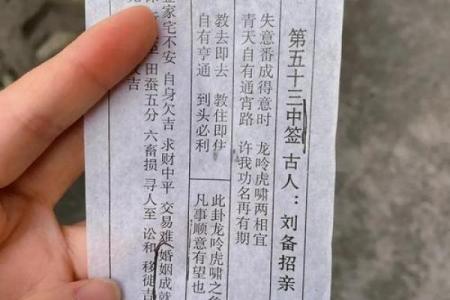 第五十三中签 古人：刘备招亲
失意番成得意时 龙呤虎啸两相宜
青天自有通宵路 许我功名再有期
教去即去 教住即住
自有亨通 到头必利
此卦龙呤虎啸之
凡事顺意有望也
家宅不安 自身欠吉 求财中平 交易难 婚姻成就
田蚕五分 六畜损 寻人至 讼和 移徙吉
欠吉